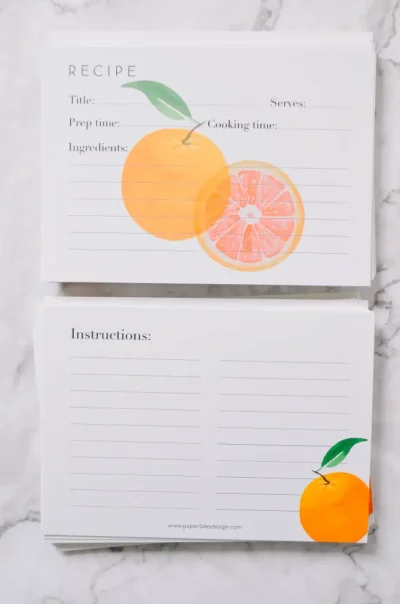 RECIPE
Title: Serves:
Prep time: Cooking time:
Ingredients:
Instructions:
www.papertalesdesign.com